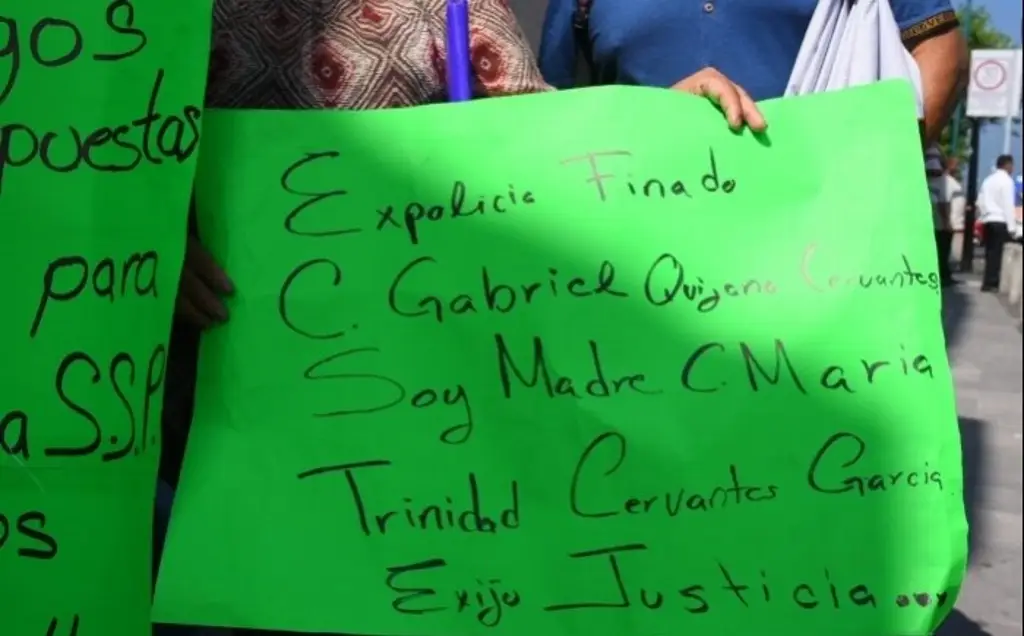 gos
puestas
para
a S.S.P.
os
Expolicia Finado
C. Gabriel Quijano Cervantes
Soy Madre C. Maria
Trinidad Cervantes Garcia
Exijo Justicia...